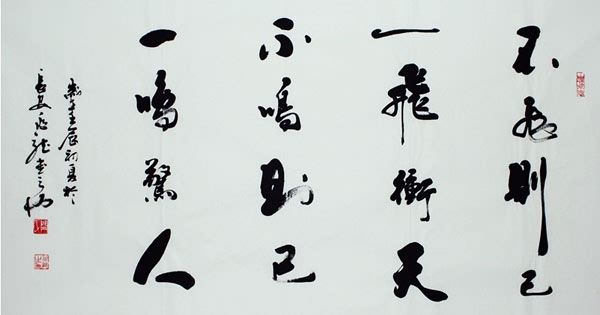 不飛則已
一飛衝天
不鳴則已
一鳴驚人
壬辰初夏於
長安